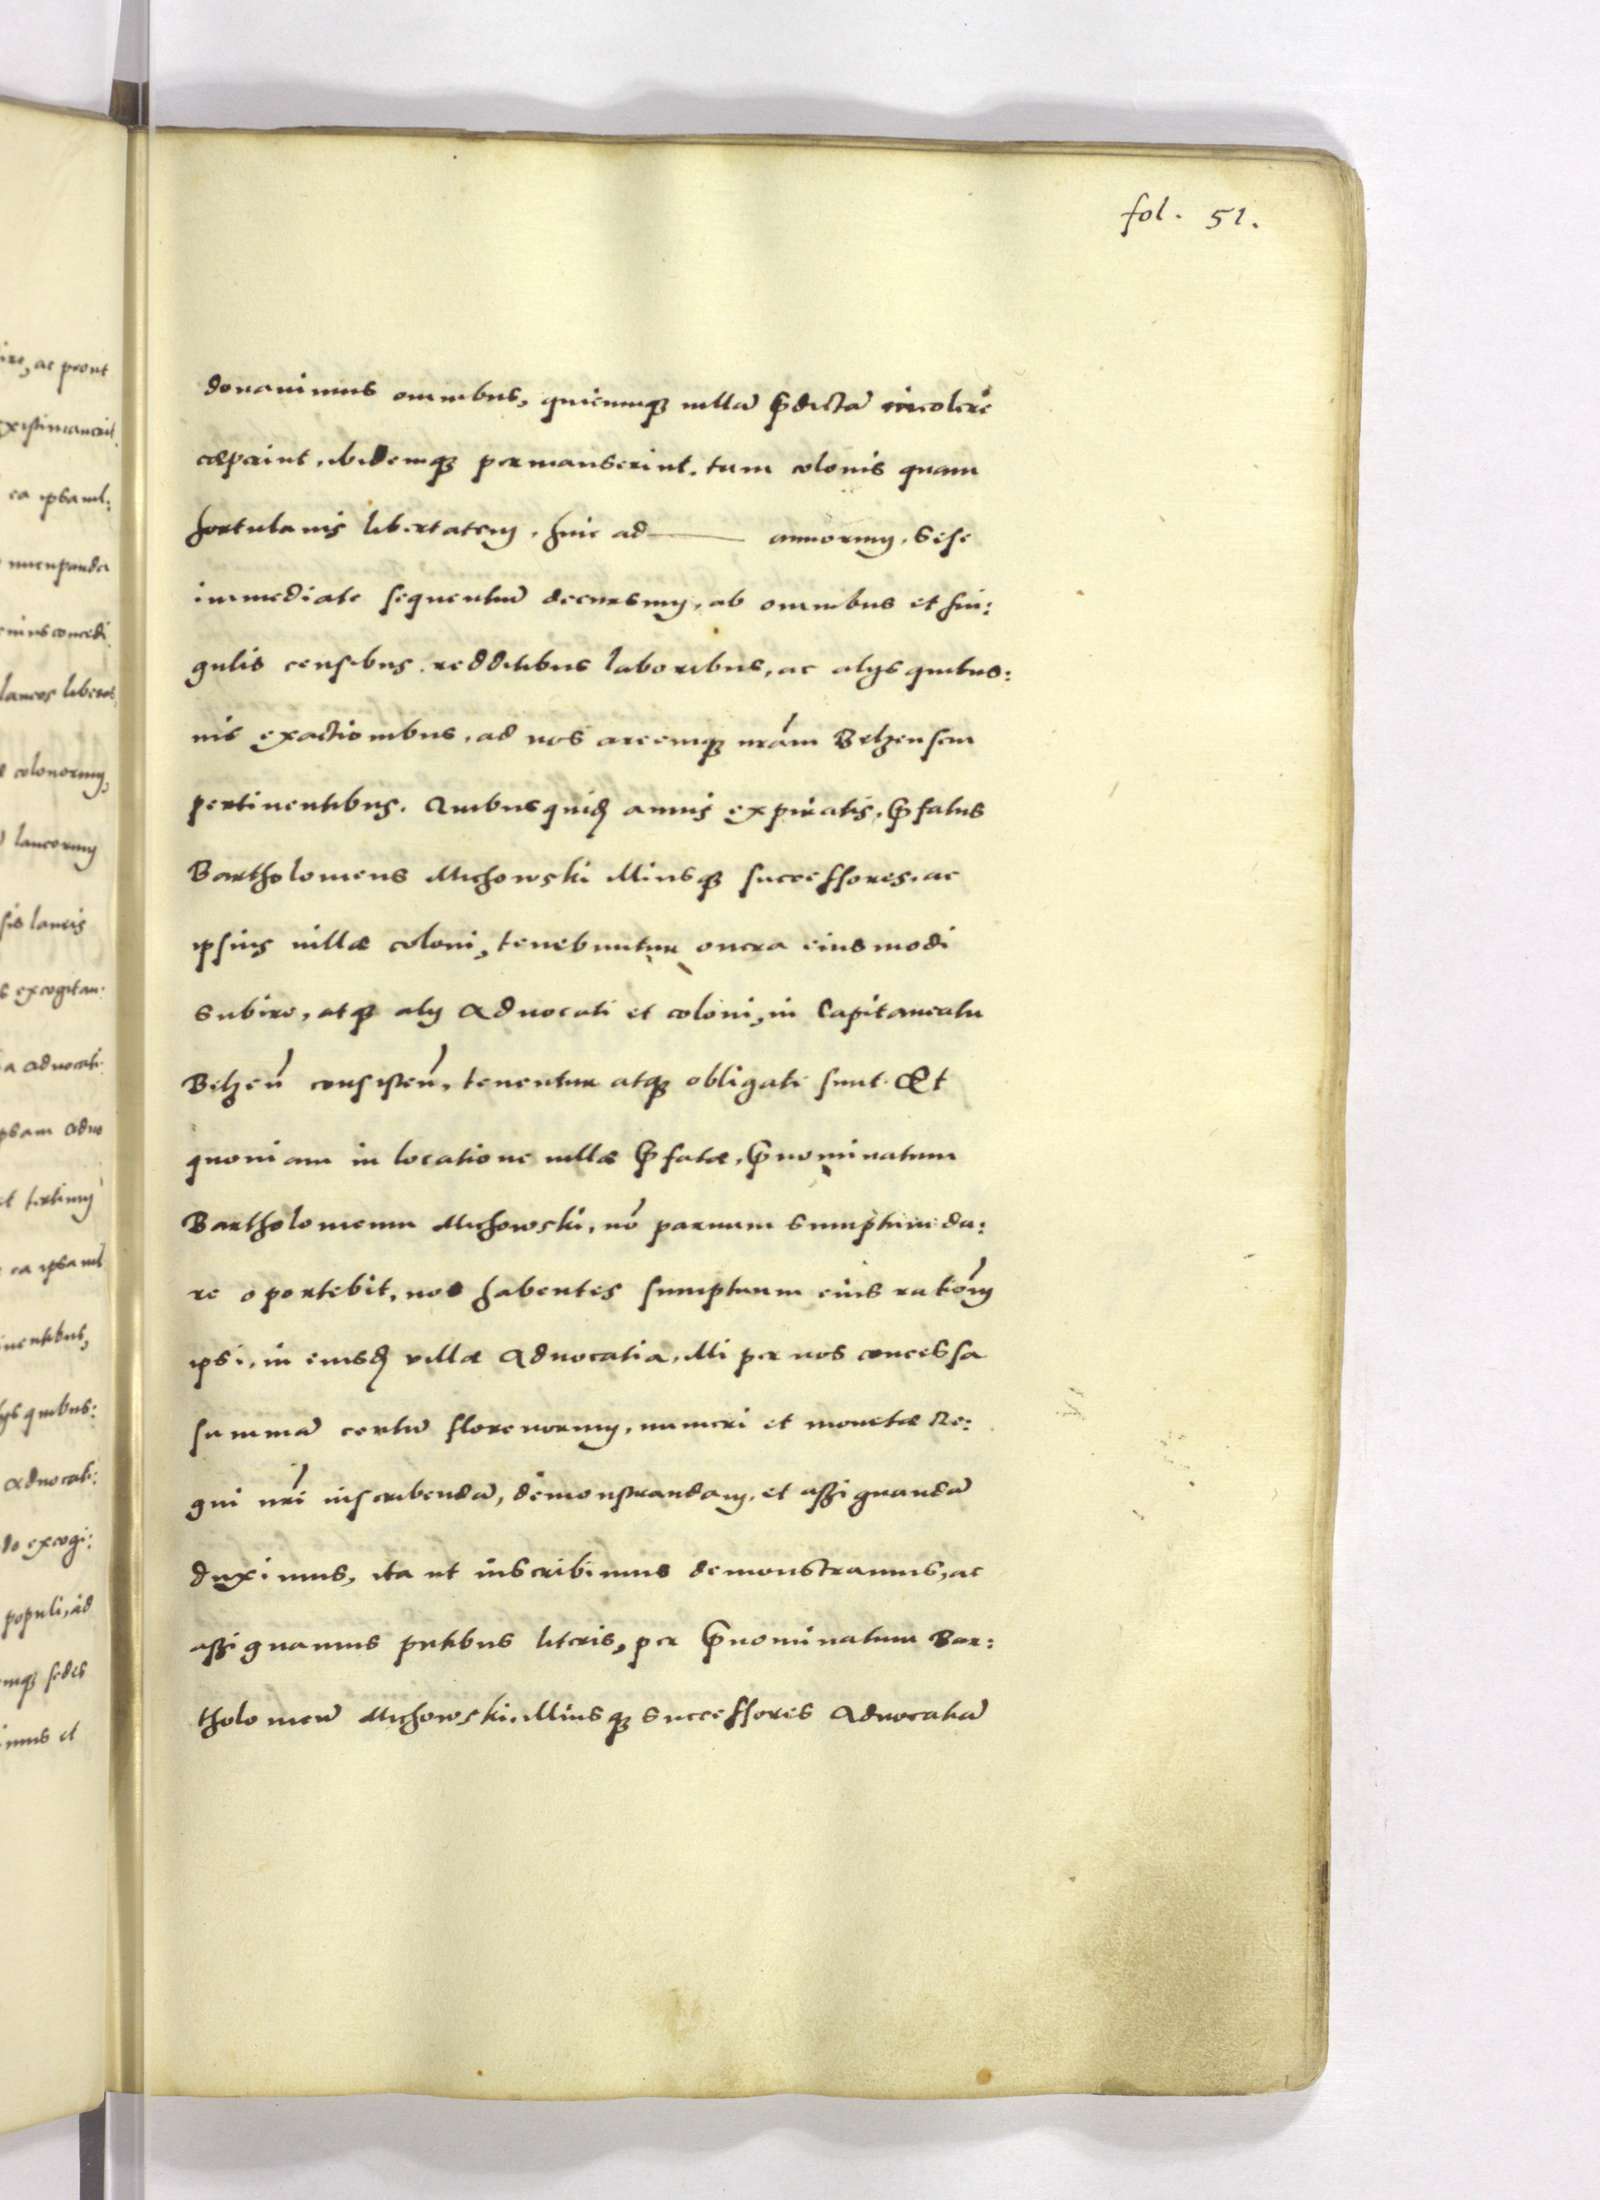 fol. 51.
donauimus omnibus, quicunq; uillã p̃dictã incolere
cæperint, ibidemq; permanserint, tum colonis quam
hortulanis libertatem, hinc ad —— annorum, sese
immediate sequentiũ decursum, ab omnibus et sin:
gulis censibus, redditibus laboribus, ac alijs quibus:
uis exactionibus, ad nos arcemq; nrãm Belzensem
pertinentibus. Quibusquid annis expiratis, p̃fatus
Bartholomeus Michowski illiusq; successores, ac
ipsius uillæ coloni, tenebuntur onera eiusmodi
subire, atq; alij Aduocati et coloni, in Capitaneatu
Belzeñ consisteñ, tenentur atq; obligati sunt. Et
quoniam in locatione uillæ p̃fatæ, p̃nominatum
Bartholomeum Michowski, nõ paruum sumptum da:
re oportebit, nos habentes sumptuum eius ratiõem
ipsi, in eiusd villæ Aduocatia, illi per nos concessa
summã centũ florenorum, numeri et monetæ Re:
gni nri inscribendã, demonstrandam, et assignandã
duximus, ita ut inscribimus demonstramus, ac
assignamus pntibus literis, per p̃nominatum Bar:
tholomeũ Michowski, illiusq; successores Aduocatiã
ac prout
ea ipsa uil:
nuncupanda
lancos liberos
colonorum,
lancorum
lancis
excogitan:
Aduocati
ipsam Aduo
et tertium
ea ipsa uil
quibus:
Aduocati:
excogi:
populi, ad
sedes
imus et